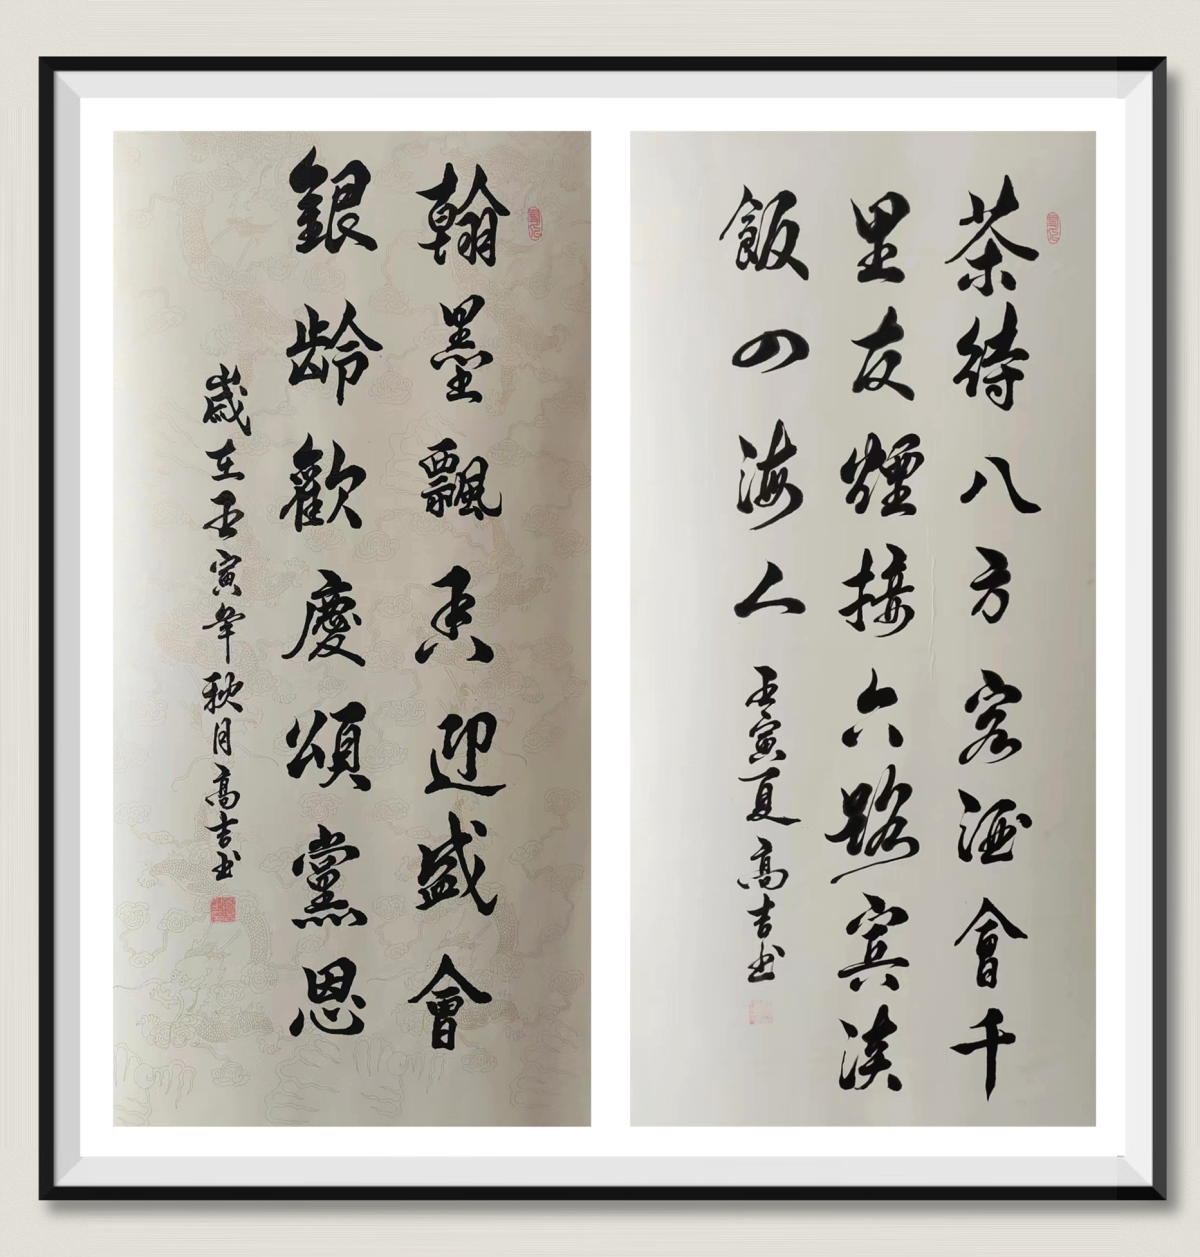 茶待八方客酒會千
里友煙接六路宾淡
飯四海人 壬寅夏高吉书
翰墨飄香迎盛會
銀龄歡慶頌黨恩
歲在壬寅年秋月高吉书